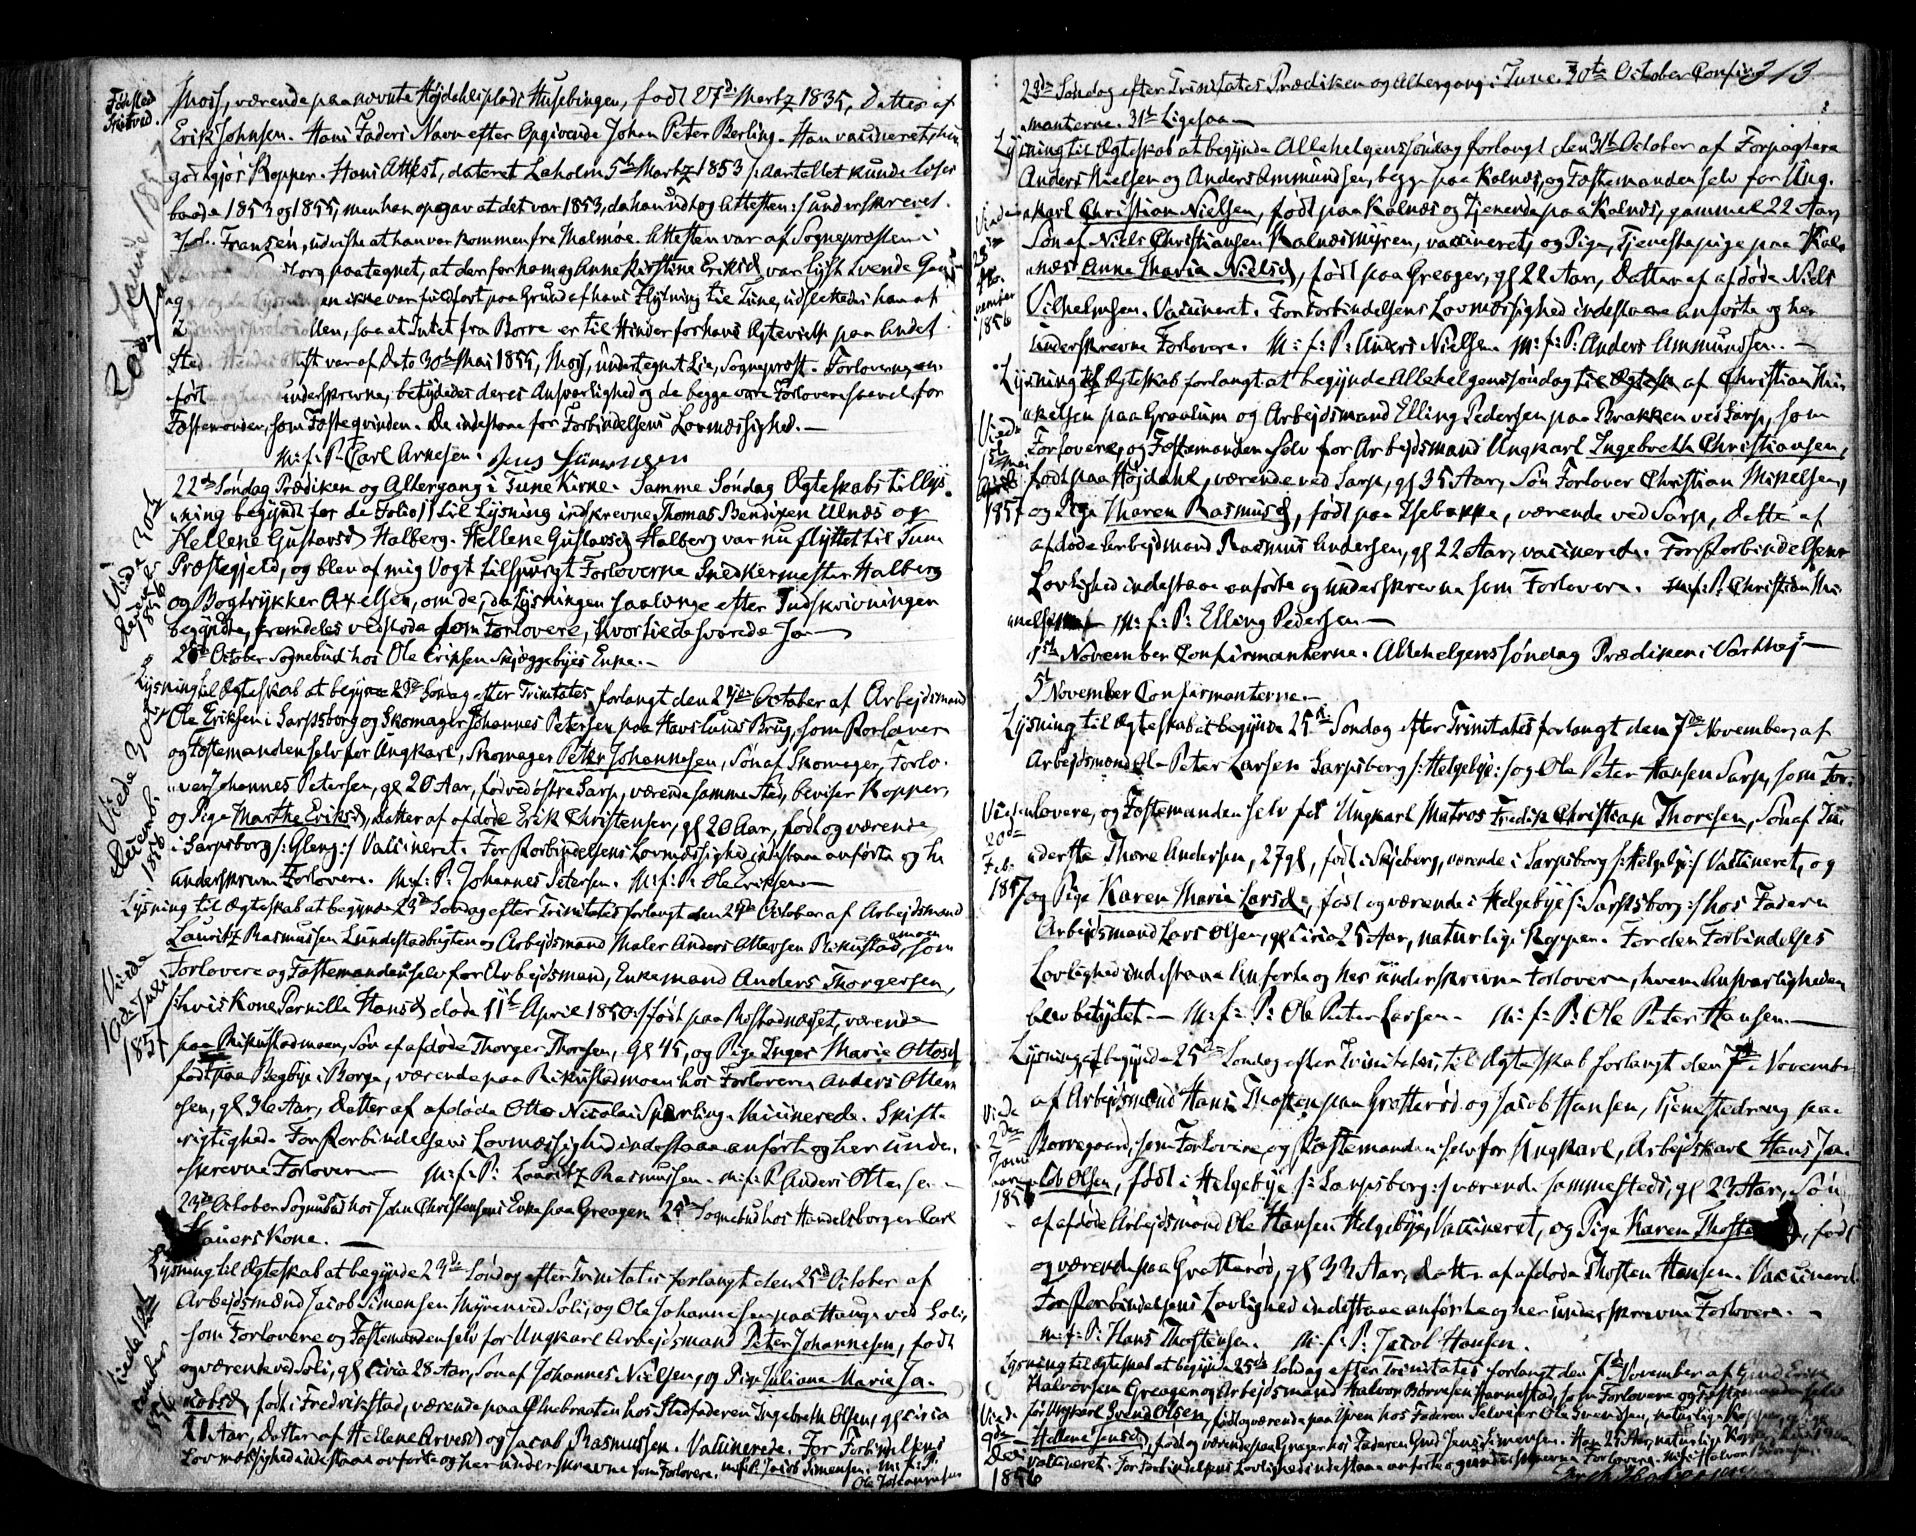 Moss, værende paa nævnte Højdahlsplads Husebingen, født 27de Martz 1835, Datter af
Erik Johnsen. Hans Faders Navn efter Opgivende Johan Peter Berling. Han vaccineret, hun
Kopper. Hans Attest, dateret Laholm 5th Martz 1853 /: Aartallet kunde læses
baade 1853 og 1855, men han opgav at det var 1853, da han udtog Attesten :/ underskrevet
Joh. Fransén, udviste at han var kommen fra Malmöe. Attesten var af Sognepræsten i
paategnet, at der for ham og Anne Kirstine Eriksd. var lyst tvende
Lysningen ikke var fuldført paa Grund af hans Flytning til Tune, udslettedes han af
Lysningsprotocollen, saa at Intet fra Borre er til Hinder for hans Ægtevielse paa andet
Sted. Hendes Attest var af Dato 30te Mai 1855, Moss, undertegnet Lie, Sogneprost. Forloverne, an-
ført underskrevne, betydedes deres Ansvarlighed og de begge vare Forlovere saavel for
Fæstemanden, som Fæsteqvinden. De indestaae for Forbindelsens Lovmæssighed.
M: f: P: Carl Arnesen.
22de Søndag Prædiken og Altergang i Tune Kirke. Samme Søndag Ægteskabs tillys-
ning begyndt for de Folio til Lysning indskrevne Thomas Bendixen Ulnæs og
Hellene Gustavsd. Halberg. Hellene Gustavsd. Halberg var nu flyttet til Tune
Præstegjeld, og blev af mig Vogt tilspurgt Forloverne Snedkermester Halberg
og Bogtrykker Axelsen, om de, da Lysningen saalænge efter Indskrivningen
begyndte, fremdeles vedstode som Forlovere, hvortil de svarede Ja
October Sognebud hos Ole Eriksen Skjæggebyes Enke.
Lysning til Ægteskab at begynde 23de Søndag efter Trinitates, forlangt den October af Arbejdsmand
Ole Eriksen i Sarpsborg og Skomager Johannes Petersen paa Havslunds Brug, som Forlovere
og Fæstemanden selv for Ungkarl, Skomager Peter Johannesen, Søn af Skomager, Forlo-
ver Johannes Petersen, gl 20 Aar, fød ved østre Sarp, værende sammesteds, beviser Kopper,
og Pige Marthe Eriksd, Datter af afdøde Erik Christensen, gl 20 Aar, født og værende
i Sarpsborg /: Gleng :/ Vaccineret. For Forbindelsens Lovmæssighed indestaae anførte og her
underskrevne Forlovere. M: f: P: Johannes Petersen. M: f: P: Ole Eriksen
Lysning til Ægteskab at begynde 23de Søndag efter Trinitates forlangt den October af Arbejdsmand
Lauritz Rasmussen Lundestadbugten og Arbejdsmand Maler Anders Ottersen Rikustadmoen, som
Forlovere og Fæstemanden selv for Arbejdsmand, Enkemand Anders Thorgersen,
/: hvis Kone Pernille Hansd døde 11te April 1850 :/ født paa Rostadnæsset, værende
paa Rikustadmoen, Søn af afdøde Thorger Thoresen, gl 45, og Pige Inger Marie Ottosd
født paa Begbye i Borge, værende paa Rikustadmoen hos Forloveren Anders Otter-
sen, gl 36 Aar, Datter af afdøde Otto Nicolai Sperling. Vaccinerede. Skifte-
rigtighed. For Forbindelsens Lovmæssighed indestaae anførte og her under-
skrevne Forlovere M: f: P: Lauritz Rasmussen. M: f: P: Anders Ottersen
23de October Sognebud hos John Christensens Enke paa Greager 25de Sognebud hos Handelsborger Carl
Hauers Kone.
Lysning til Ægteskab at begynde 23de Søndag efter Trinitates forlangt den 25de October af
Arbejdsmand Jacob Simensen Myren ved Soli, og Ole Johannesen paa Hauge ved Soli,
som Forlovere og Fæstemanden selv for Ungkarl Arbejdsmand Peter Johannesen, født
og værende ved Soli, gl circa 28 Aar, Søn af Johannes Nielsen, og Pige Juliane Marie Ja-
kobsd, født i Fredrikstad, værende paa hos Stedfaderen Ingebreth Olsen, gl circa
21 Aar, Datter af Hellene Arvesd og Jacob Rasmussen. Vaccinerede. For Forbindelsens
Lovmæssighed indestaae anførte og her underskrevne som Forlovere. M: f: P: Jacob Simensen. M: f: P:
Ole Johannesen
Viede 30te
1856
Viede 30te
1856
Viede
10de Juli
1857
1856
213
23de Søndag efter Trinitates Prædiken og Altergang i Tune. 30te October Confir-
manterne. 31te Ligesaa
Lysning til Ægteskab at begynde Allehelgenssøndag forlangt den 31te October af Forpagtere
Anders Nielsen og Anders Ammundsen, begge paa Kalnæs, og Fæstemanden selv for Ung-
karl Christian Nielsen, født paa Kalnæs og Tjenende paa Kalnæs, gammel 22 Aar,
Søn af Niels Christiansen Kalnæsmyren, vaccineret, og Pige, Tjenestepige paa Kal-
næs Anne Maria Nielsd, født paa Greager, gl 22 Aar, Datter af afdøde Niels
Vilhelmsen. Vaccineret. For Forbindelsens Lovmæssighed indestaae anførte og her
underskrevne Forlovere. M: f: P: Anders Nielsen M: f: P: Anders Ammundsen.
Lysning til Ægteskab forlangt at begynde Allehelgenssøndag af Christian Mi-
kelsen paa Greaalum og Arbejdsmand Elling Pedersen paa Brakken ved Sarp, som
Forlovere, og Fæstemanden selv for Arbejdsmand Ungkarl Ingebreth Christiansen,
født paa Højdahl, værende ved Sarp, gl 35 Aar, Søn Forlover Christian Mikelsen,
og Pige Maren Rasmusd, født paa Isebakke, værende ved Sarp, Datter af
afdøde Arbejdsmand Rasmus Andersen, gl 22 Aar, vaccinerede. For Forbindelsens
Lovlighed indestaae anførte og underskrevne som Forlovere. M: f: P: Christian Mi-
kelsen M: f: P: Elling Pedersen
1ste November Confirmanterne. Allehelgenssøndag Prædiken i Varteig
5te November Confirmanterne.
Lysning til Ægteskab at begynde 25de Søndag efter Trinitates forlangt den 7de November, af
Arbejdsmand Ole Peter Larsen Sarpsborg /: Helgebye :/ og Ole Peter Hansen Sarp, som For-
lovere, og Fæstemanden selv for Ungkarl Matros Fredik Christian Thoresen, Søn af
Thore Andersen, 27 gl, fød i Skjeberg, værende i Sarpsborg /: Helgebye :/ Vaccineret, og
og Pige Karen Maria Larsd, født og værende i Helgebye /: Sarpsborg :/ hos Faderen
Arbejdsmand Lars Olsen, gl circa 25 Aar, naturlige Kopper. For den Forbindelses
Lovlighed indestaae anførte og her underskrevne Forlovere, hvem Ansvarligheden
blev betydet. M: f: P: Ole Peter Larsen. M: f: P: Ole Peter Hansen.
Lysning at begynde 25de Søndag efter Trinitates, til Ægteskab forlangt den 7de November
af Arbejdsmand Hans Thostensen Grøtterød og Jacob Hansen, Tjenestedreng paa
Borregaard, som Forlovere og Fæstemanden selv for Ungkarl, Arbejdskarl Hans Ja-
cob Olsen, født i Helgebye /: Sarpsborg :/ værende sammesteds, gl 23 Aar, Søn
af afdøde Arbejdsmand Ole Hansen Helgebye, Vaccineret, og Pige Karen Thoste, født
og værende paa Grøtterød, gl 33 Aar, Datter af afdøde Thosten Hansen. Vaccineret.
For Forbindelsens Lovlighed indestaae anførte og her underskrevne Forlovere.
M: f: P: Hans Thostensen. M: f: P: Jacob Hansen.
Lysning til Ægteskab at begynde 25de Søndag efter Trinitates forlangt den 7de November af Gmd Erik
Halvorsen Greager og Arbejdsmand Halvor Børresen Hannestad, som Forlovere og Fæstemanden selv
for Ungkarl Svend Olsen, født og værende paa hos Faderen Selveier Ole Svendsen, naturlige Kopper, og Pige
Hellene Jensd, født og værende paa Greager hos Faderen Gmd Jens Simensen. 25 Aar, naturlige Kopper,
vaccineret. For Forbindelsens Lovlighed indestaae anførte og underskrevne Forlovere. M: f: P: Halvor Børresen
Viede
1856
Viede
1857
Viede
20de
Feb.
1857
Viede
2den
1856
Viede
9de
Dec
1856